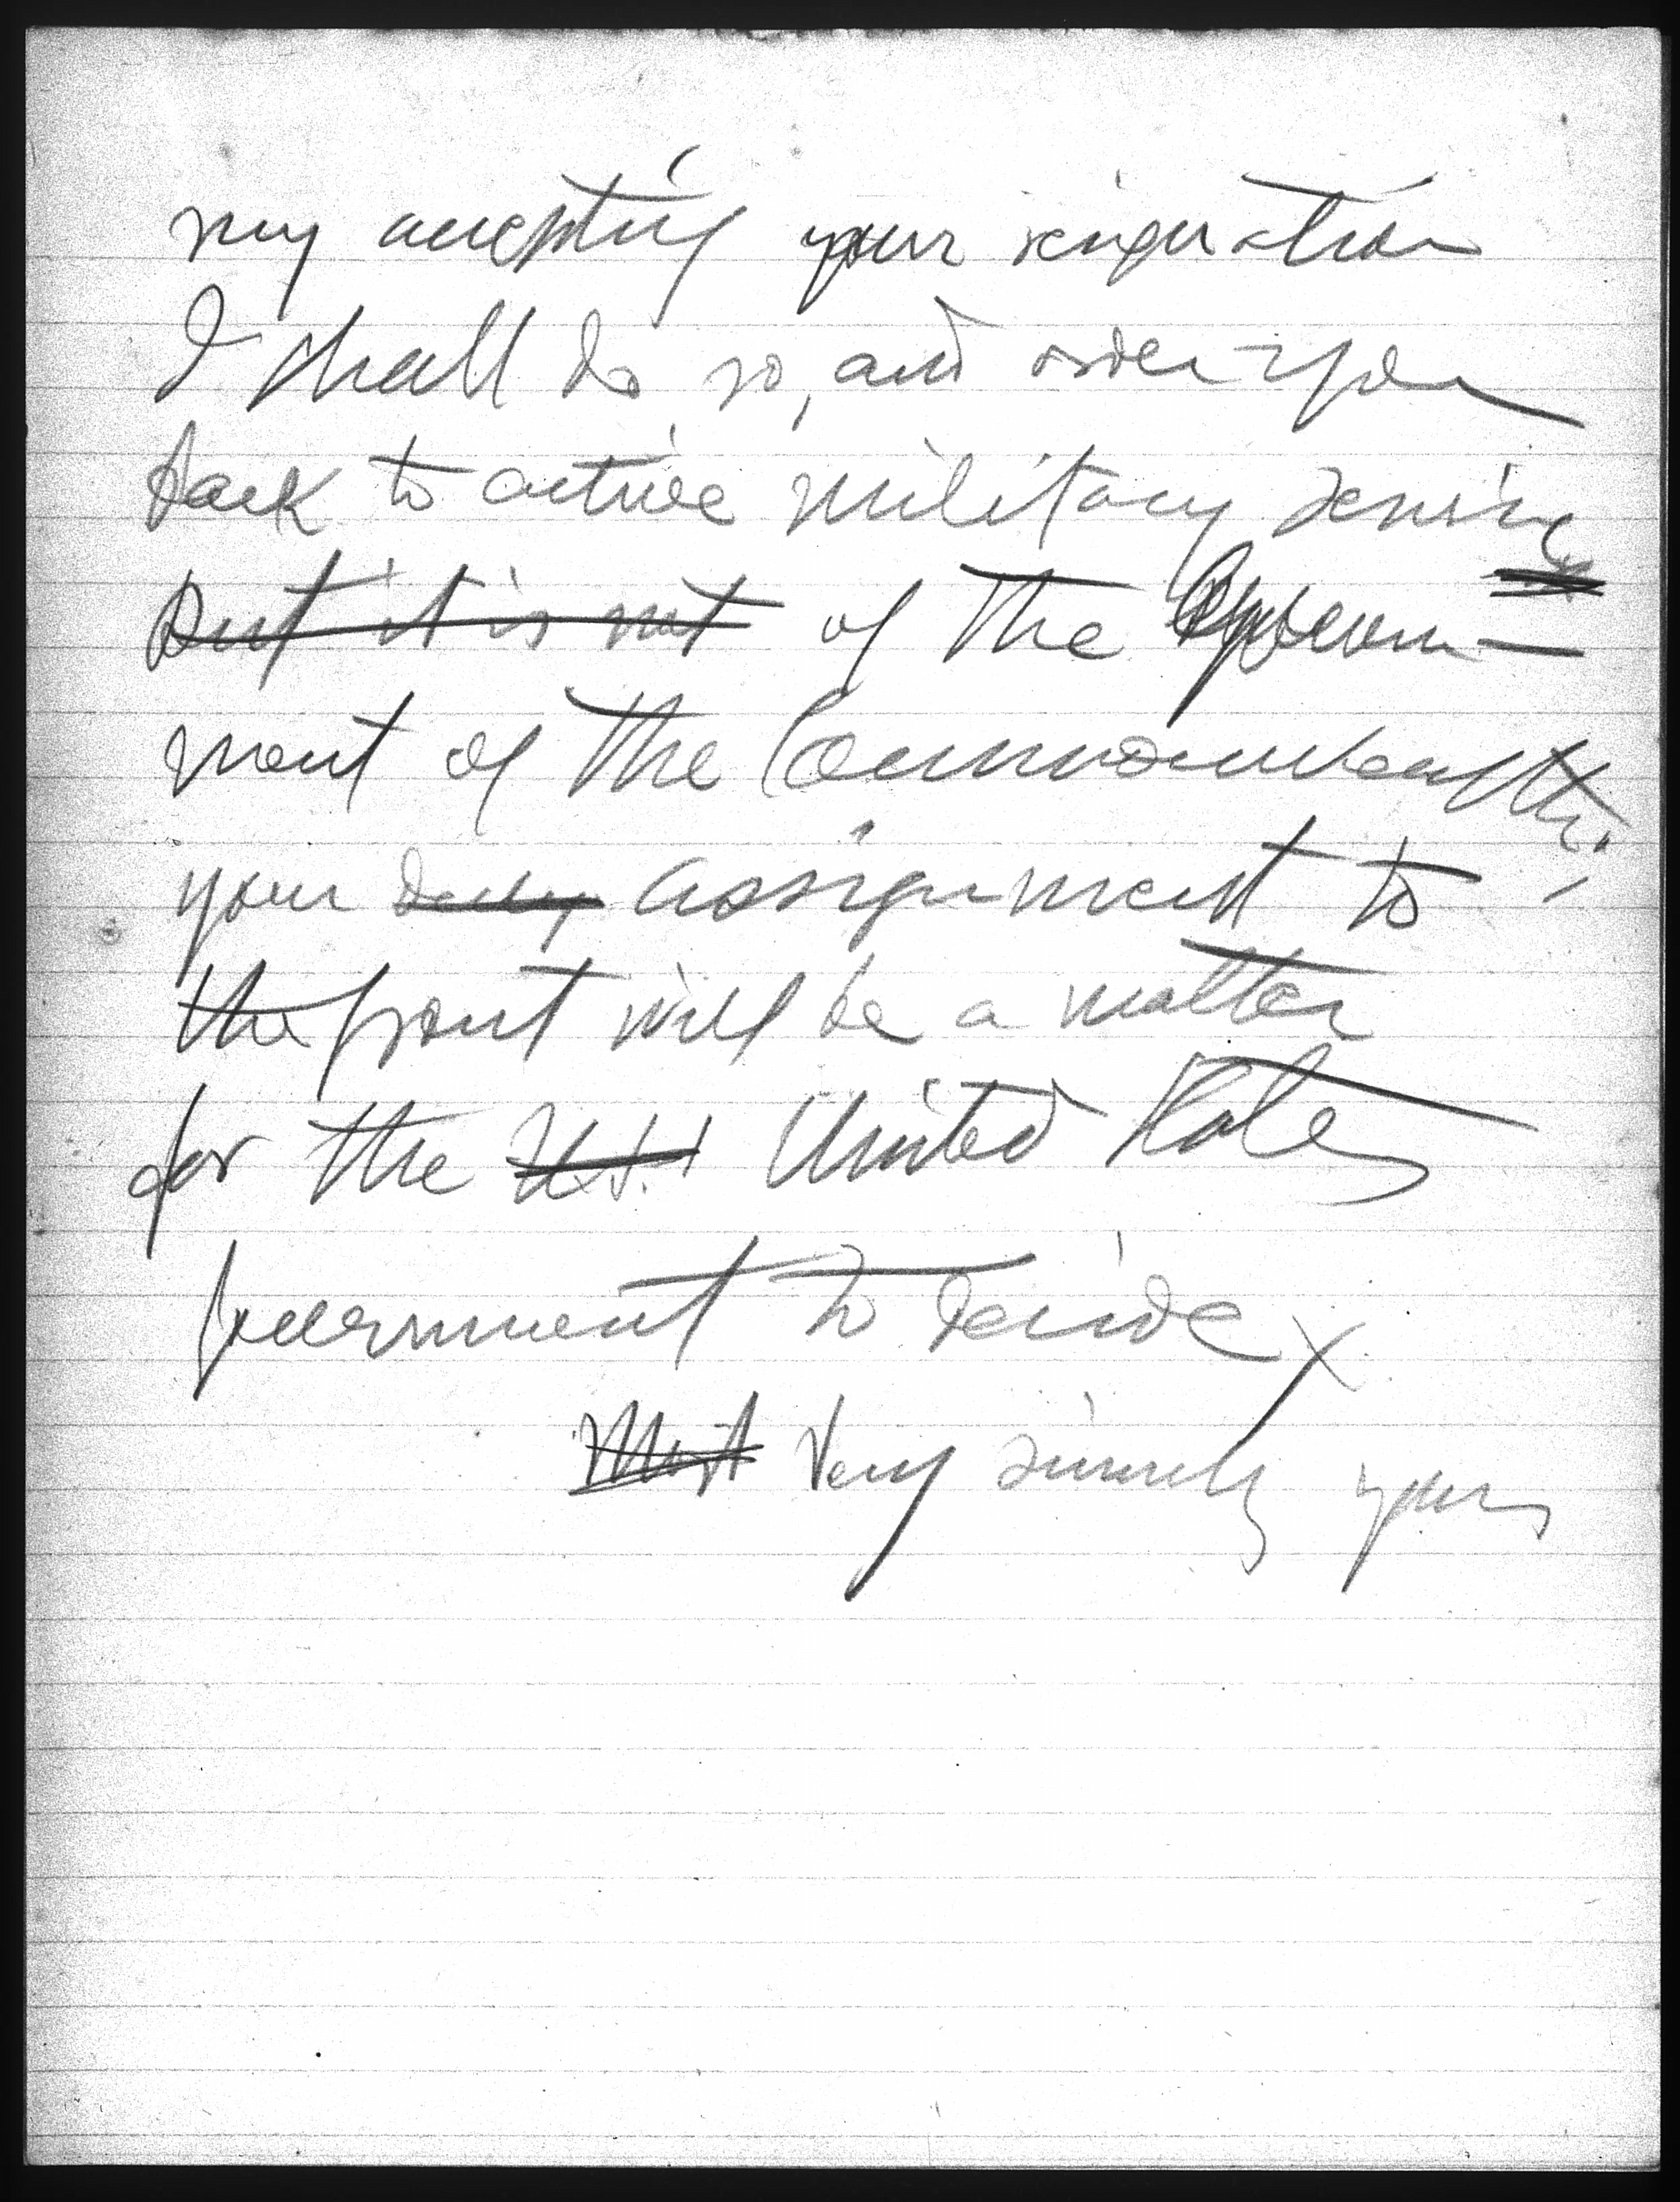 my accepting your resignation
I shall do so, and order you
back to active military service
But it is not of the Govern-
ment of the Commonwealth;
your assignment to
the front will be a matter
for the U.S. United States
Government to decide.
Most Very sincerely yours